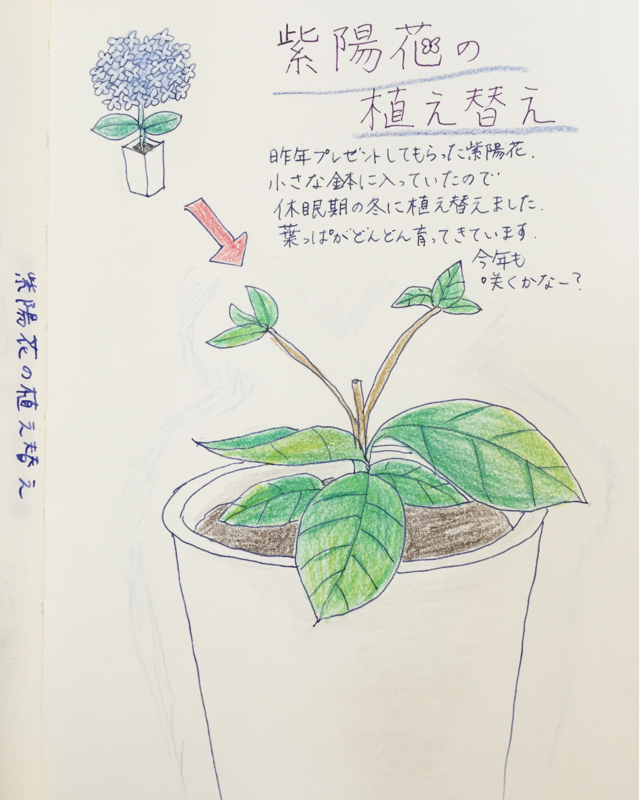 紫陽花の
植え替え
昨年プレゼントしてもらった紫陽花.
小さな鉢に入っていたので
休眠期の冬に植え替えました.
葉っぱがどんどん育ってきています.
今年も
咲くかなー?
紫陽花の植え替え